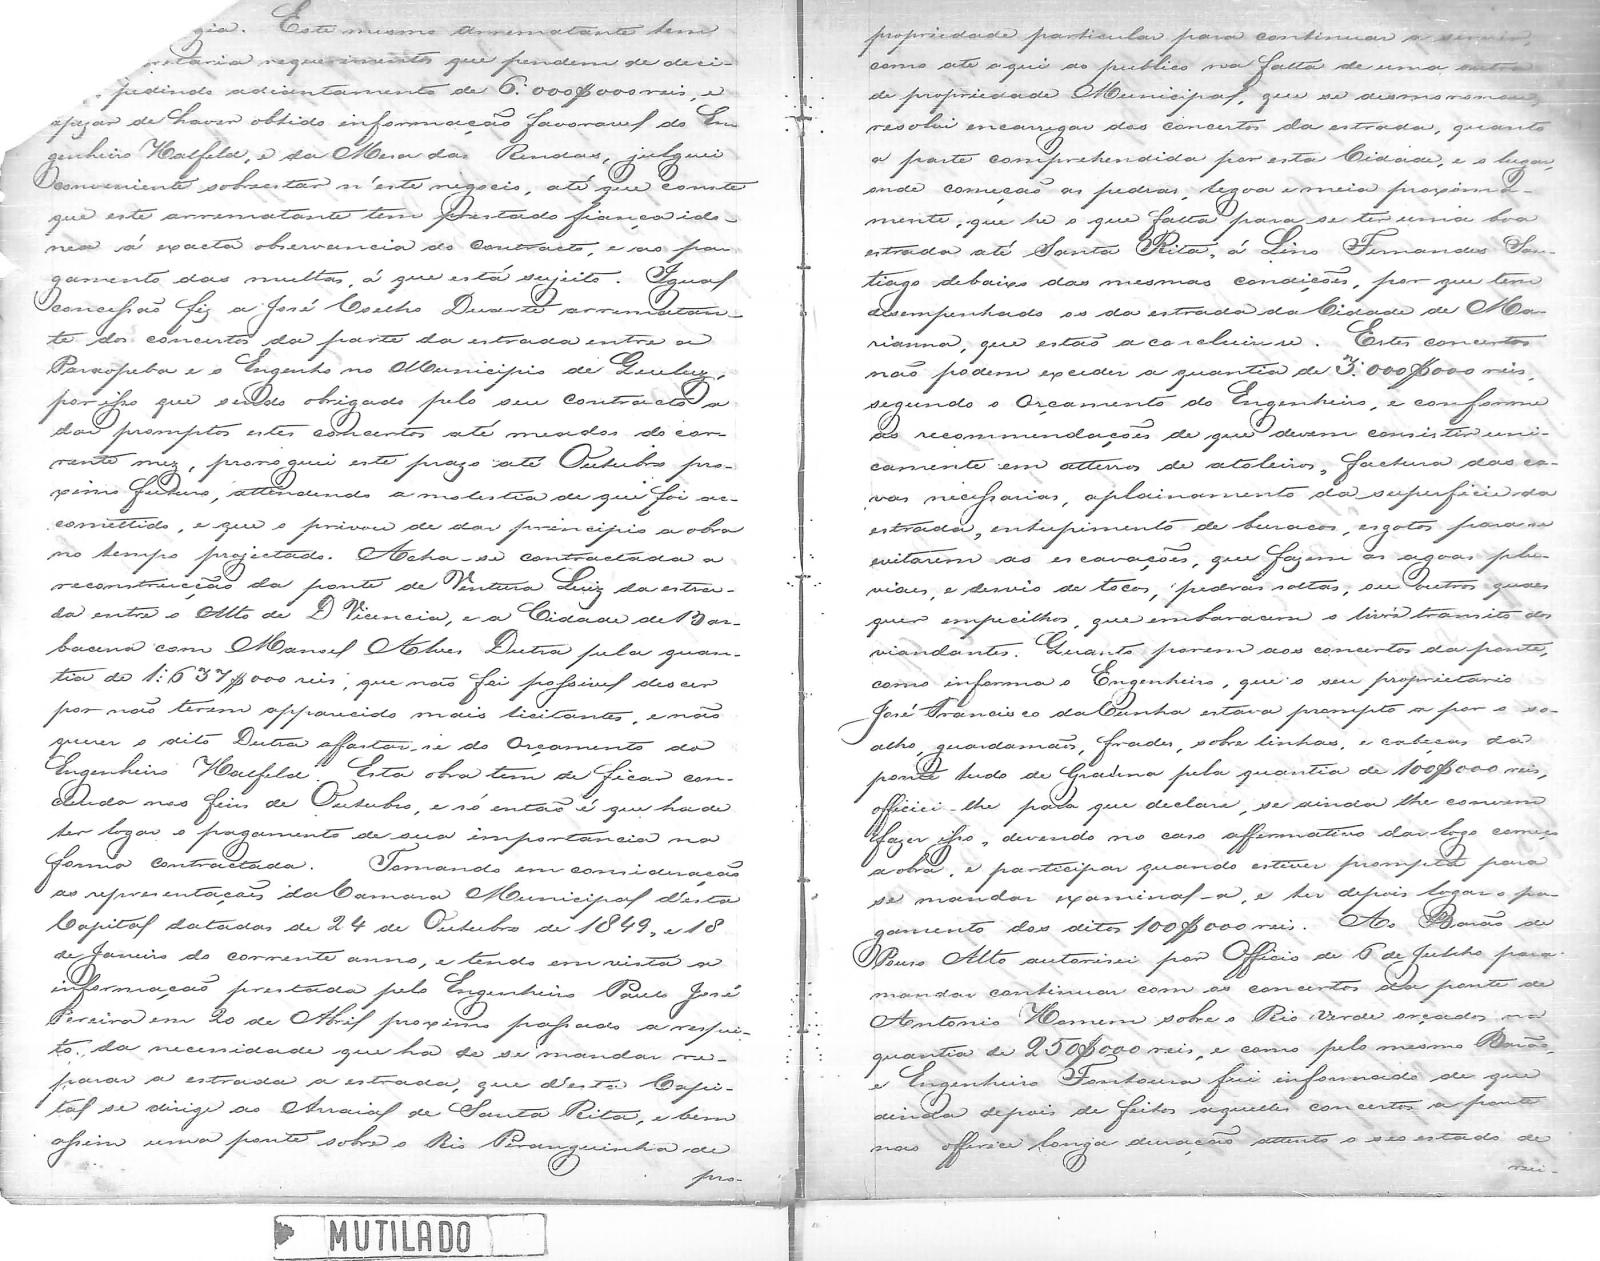 gia. Este mesmo arrematante tem
retaria requerimentos que pendem de deci-
pedindo adiantamento de 6:000$000 reis, e
apezar de haver obtido informação favoravel do En
genheiro Halfeld, e da Mesa das Rendas, julguei
conveniente sobrestar n'este negocio, até que conste
que este arrematante tem prestado fiança ido-
nea á exacta observancia do contracto, e ao pa-
gamento das multas, á que está sujeito. Igual
concessão fiz a José Coelho Duarte arrematan-
te dos concertos da parte da estrada entre a
Paraopeba e o Engenho no Municipio de Queluz,
por isso que sendo obrigado pelo seu contracto a
dar promptos estes concertos até meados do cor-
rente mez, proroguei este prazo até Outubro pro-
ximo futuro, attendendo a molestia de que foi ac-
comettido, e que o privou de dar principio a obra
no tempo projectado. Acha-se contractada a
reconstrucção da ponte de Ventura Luiz da estra-
da entre o Alto de D Vicencia, e a Cidade de Bar-
bacena com Manoel Alves Dutra pela quan-
tia de 1:637$000 reis, que não foi possivel descer
por não terem apparecido mais licitantes, e não
querer o dito Dutra affastar-se do Orçamento do
Engenheiro Halfeld. Esta obra tem de ficar con-
cluida nos fins de Outubro, e só então é que ha de
ter logar o pagamento de sua importancia na
forma contractada. Tomando em consideração
as representações da Camara Municipal d'esta
Capital datadas de 24 de Outubro de 1849, e 18
de Janeiro do corrente anno, e tendo em vista a
informação prestada pelo Engenheiro Paulo José
Pereira em 20 de Abril proximo passado a respei-
to da necessidade que ha de se mandar re-
parar a estrada a estrada, que d'esta Capi-
tal se dirige ao Arraial de Santa Rita, e bem
assim uma ponte sobre o Rio Peranguinha de
pro-
propriedade particular para continuar a servir,
como até aqui ao publico na falta de uma outra
de propriedade Municipal, que se desmoronou,
resolvi encarregar dos concertos da estrada, quanto
a parte comprehendida por esta Cidade, e o lugar,
onde começão as pedras, legoa e meia proxima-
mente, que he o que falta para se ter uma boa
estrada até Santa Rita, á Lino Fernandes San-
tiago debaixo das mesmas condições, por que tem
desempenhado os da estrada da Cidade de Ma-
rianna, que estão a concluir-se. Estes concertos
não podem exceder a quantia de 3:000$000 reis,
segundo o Orçamento do Engenheiro, e conforme
as recommendações de que devem consistir uni-
camente em atterros de atoleiros, factura das ca-
vas necessarias, aplainamento da superficie da
estrada, entupimento de buracos, esgotos para se
evitarem as escavações, que fazem as agoas plu-
viaes, e desvio de tocos, pedras soltas, ou outros quaes
quer empecilhos, que embaracem o livre transito dos
viandantes. Quanto porem aos concertos da ponte,
como informa o Engenheiro, que o seu proprietario
José Francisco da Cunha estava prompto a por o so-
alho, guardamãos, frades, sobre linhas, e cabeças da
ponte tudo de Graúna pela quantia de 100$000 reis,
officiei-lhe para que declare, se ainda lhe convem
fazer isso, devendo no caso affirmativo dar logo começo
a obra, e participar quando estiver prompta para
se mandar examinal-a, e ter depois logar o pa-
gamento dos ditos 100$000 reis. Ao Barão de
Pouso Alto autorisei por Officio de 6 de Julho para
mandar continuar com os concertos da ponte de
Antonio Homem sobre o Rio Verde orçados na
quantia de 250$000 reis, e como pelo mesmo Barão,
e Engenheiro Fontoura fui informado de que
ainda depois de feitos aquelles concertos a ponte
nao offerece longa duração attento o seo estado de
rui-
MUTILADO